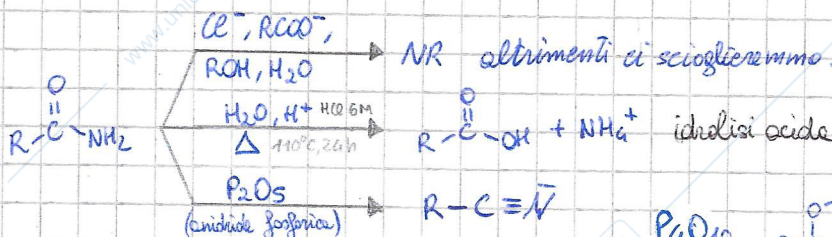 Cl⁻, RCOO⁻,
ROH, H₂O
NR altrimenti ci scioglieremmo.
O
R-C-NH₂
H₂O, H⁺ HCl 6M
Δ 110°C, 24h
O
R-C-OH + NH₄⁺ idrolisi acida
P₂O₅
(anidride fosforica)
R-C≡N
P₄O₁₀
O⁻
www.uni